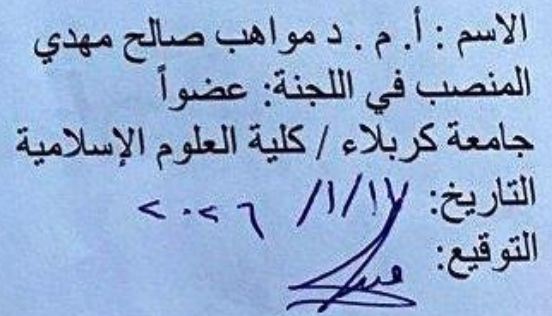 الاسم : أ. م . د مواهب صالح مهدي
المنصب في اللجنة: عضواً
جامعة كربلاء / كلية العلوم الإسلامية
التاريخ: ١٧/ ١/ ٢٠٢٦
التوقيع: